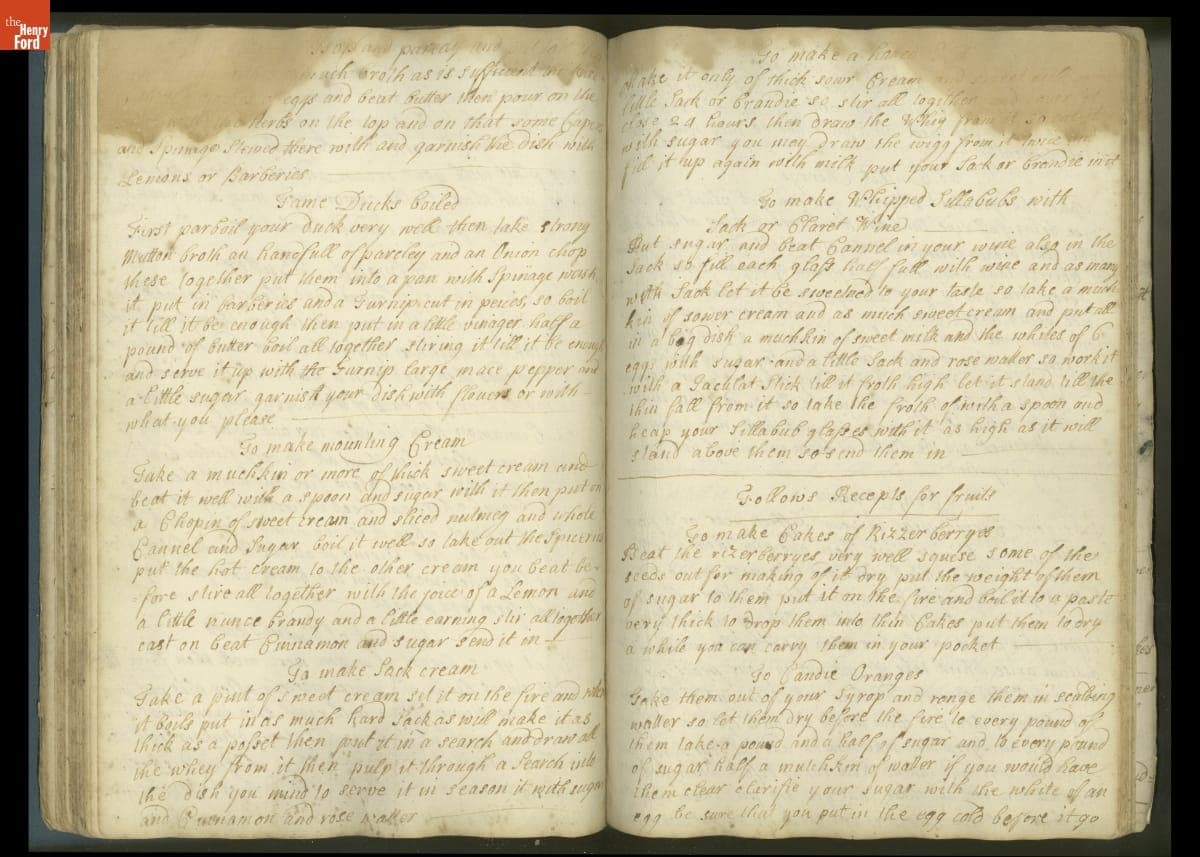 the Henry Ford
and parcley and
much broth as is sufficient
eggs and beat butter then pour on the
herbs on the top and on that some Capers
and Spinage stewed there with and garnish the dish with
Lemons or Barberies
Tame Ducks boiled
First parboil your duck very well then take strong
Mutton broth an handfull of parcley and an Onion chop
these together put them into a pan with Spinage wash
it put in Barberies and a Turnip cut in peices, so boil
it till it be enough then put in a little vinager half a
pound of butter boil all together stiring it till it be enough
and serve it up with the Turnip large mace pepper and
a little sugar garnish your dish with flowers or with
what you please
To make mounting Cream
Take a muchkin or more of thick sweet cream and
beat it well with a spoon and sugar with it then put on
a Chopin of sweet cream and sliced nutmeg and whole
Cannel and Sugar boil it well so take out the Spiceries
put the hot cream to the other cream you beat be-
fore stire all together with the joice of a Lemon and
a little nunce brandy and a little earning stir all together
cast on beat Cinnamon and sugar send it in
To make Sack cream
Take a pint of sweet cream set it on the fire and when
it boils put in as much hard Sack as will make it as
thick as a posset then put it in a search and draw all
the whey from it then pulp it through a Search into
the dish you mind to serve it in season it with sugar
and Cinnamon and rose watter
To make a
Take it only of thick sowr Cream and
little Sack or brandie so stir all together
close 24 hours then draw the Whig from it
with sugar you may draw the wigg from it twice
fill it up again with milk put your Sack or brandie in it
To make Whipped Sillabubs with
Sack or Claret Wine
Put sugar and beat Cannel in your wine also in the
Sack so fill each glass half full with wine and as many
with Sack let it be sweetned to your taste so take a much
kin of sower cream and as much sweet cream and put all
in a big dish a muchkin of sweet milk and the whites of 6
eggs with sugar and a little Sack and rose watter so work it
with a Jachlat Stick till it froth high let it stand till the
thin fall from it so take the froth of with a spoon and
heap your Sillabub glasses with it as high as it will
stand above them so send them in
Follows Recepts for fruits
To make Cakes of Rizzerberryes
Beat the rizerberryes very well squese some of the
seeds out for making of it dry put the weight of them
of sugar to them put it on the fire and boil it to a paste
very thick to drop them into thin Cakes put them to dry
a while you can carry them in your pocket
To Candie Oranges
Take them out of your Syrop and range them in scalding
watter so let them dry before the fire to every pound of
them take a pound and a half of sugar and to every pound
of sugar half a mutchkin of watter if you would have
them clear clarifie your sugar with the white of an
egg be sure that you put in the egg cold before it go